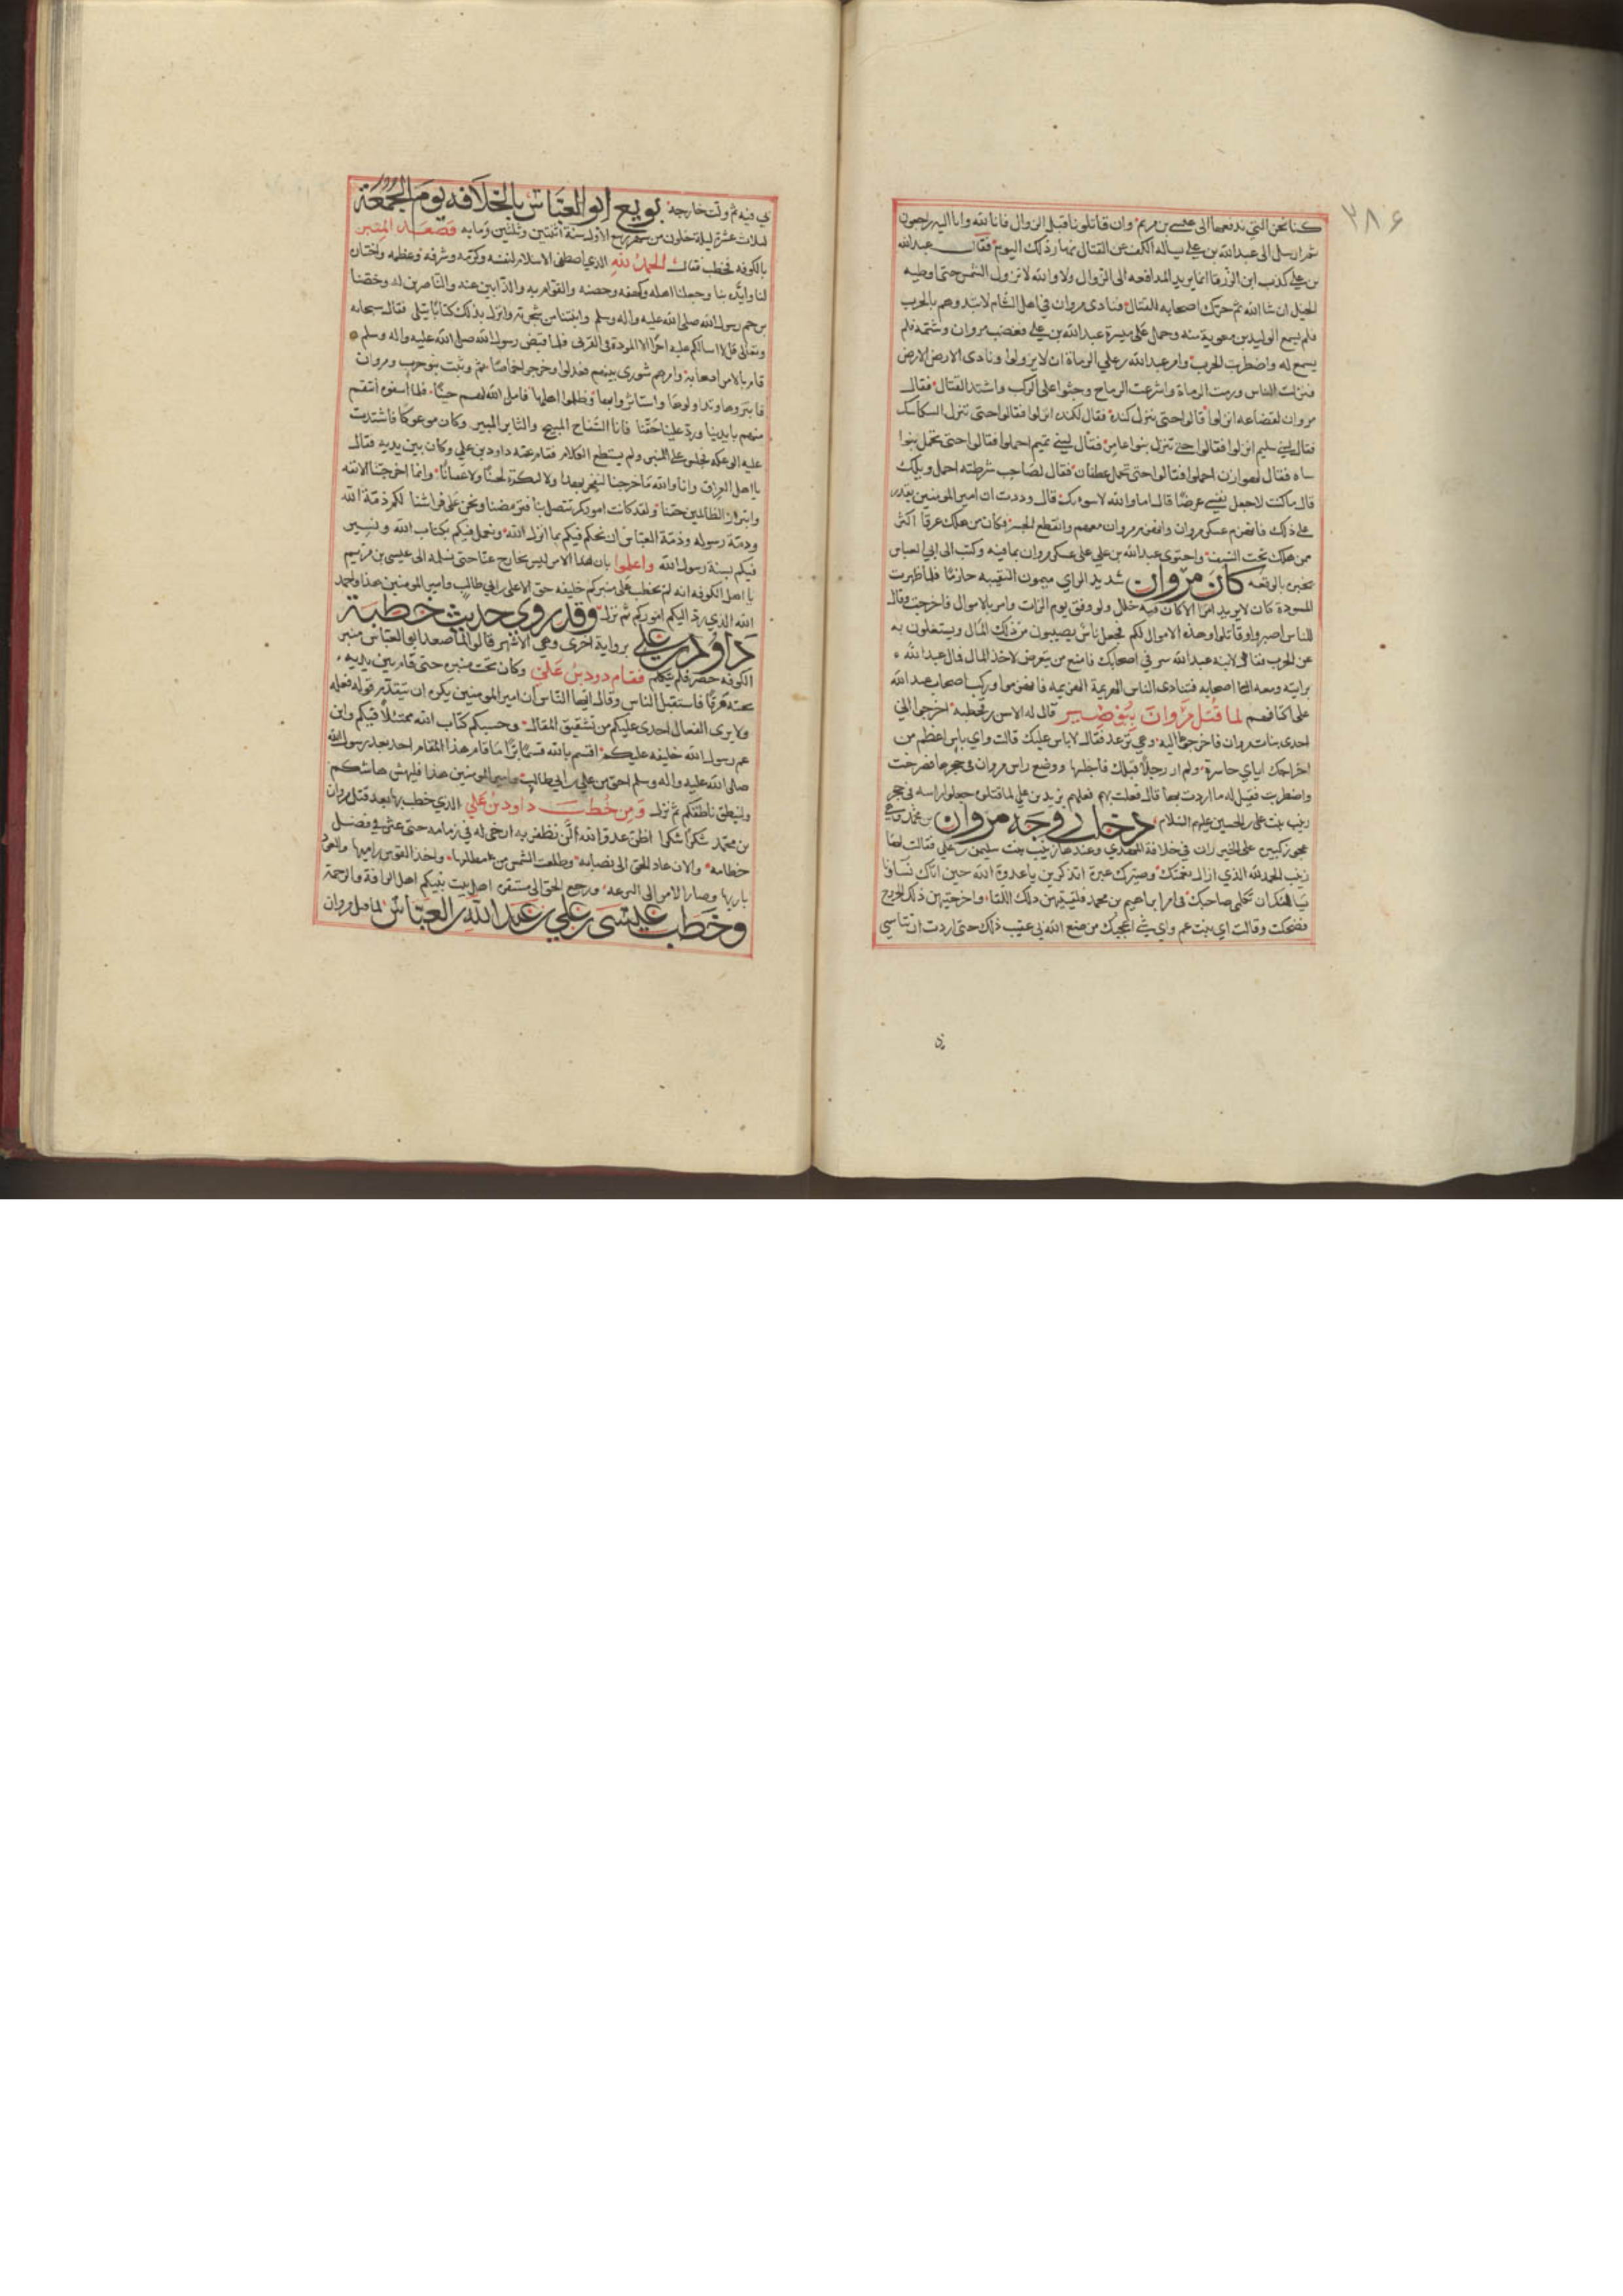 ٣٨۶
كنا نحن التي ندفعها الى عيسى بن مريم وان قاتلونا قبل الزوال فانا لله وانا اليه راجعون
ثم ارسل الى عبدالله بن علي يساله الكف عن القتال نهار ذلك اليوم فقال عبدالله
بن علي كذب ابن الزرقا انما يريد المدافعه الى الزوال ولا والله لا تزول الشمس حتى اوطيه
الخيل ان شا الله ثم حرك اصحابه للقتال فنادى مروان في اهل الشام لا تبدوهم بالحرب
فلم يسمع الوليد بن معوية منه وحمل على ميسرة عبدالله بن علي فغضب مروان وشتمه فلم
يسمع له واضطربت الحرب وامر عبدالله بن علي الرماة ان لا يزولوا ونادى الارض الارض
فنزلت الناس ورمت الرماة واشرعت الرماح وجثوا على الركب واشتد القتال فقال
مروان لقضاعه انزلوا قالوا حتى ينزل كندة فقال لكنده انزلوا فقالوا حتى تنزل السكاسك
فقال لبني سليم انزلوا فقالوا حتى تنزل بنوا عامر فقال لبني تميم احملوا فقالوا حتى تحمل بنوا
ساه فقال لهوازن احملوا فقالوا حتى تحمل غطفان فقال لصاحب شرطته احمل ويلك
قال ما كنت لاجعل نفسي عرضا قال اما والله لاسوءنك قال وددت ان امير المومنين يقدر
على ذلك فانهزم عسكر مروان وانهزم مروان معهم وانقطع الجسر فكان من هلك غرقا اكثر
ممن هلك تحت السيف واحتوى عبدالله بن علي على عسكر مروان بما فيه وكتب الى ابي العباس
يخبره بالوقعه كان مروان شديد الراي ميمون النقيبه حازما فلما ظهرت
المسودة كان لا يريد امرا الا كان فيه خلل ولو وفق يوم الزاب وامر بالاموال فاخرجت وقال
للناس اصبروا وقاتلوا وهذه الاموال لكم فجعل ناس يصيبون من ذلك المال ويستغلون به
عن الحرب فقال لابنه عبدالله سر في اصحابك فامنع من يتعرض لاخذ المال فمال عبدالله
برايته ومعه اصحابه فتنادى الناس الهزيمة الهزيمه فانهزموا وركب اصحاب عبدالله
على اكتافهم لما قتل مروان ببوصير قال لعامر اخرجي الي
احدى بنات مروان فاخرجها اليه وهي ترعد فقال لا باس عليك قالت واي باس اعظم من
اخراجك اياي حاسرة ولم ار رجلا قبلك فاجلسها ووضع راس مروان في حجرها فصرخت
واضطربت فقيل له ما اردت بهذا قال فعلت بهم فعلهم بزيد بن علي لما قتلوه جعلوا راسه في حجر
زينب بنت علي بن الحسين عليهم السلام دخلت زوجه مروان بن محمد وهي
عجوز كبيره على الخيزران في خلافة المهدي وعندها زينب بنت سليمن بن علي فقالت لها
زينب الحمد لله الذي ازال نعمتك وصيرك عبرة اتذكرين يا عدوة الله حين اتاك نساونا
يسالنك ان تكلمي صاحبك في امر ابراهيم بن محمد فلقيتيهن ذلك اللقا واخرجتيهن ذلك الخروج
فضحكت وقالت اي بنت عم واي شي اعجبك من صنع الله بي عقيب ذلك حتى اردت ان تتاسي
بي فيه ثم ولت خارجه بويع ابو العباس بالخلافه يوم الجمعة
لثلاث عشرة ليلة خلون من شهر ربيع الاول سنة اثنتين وثلثين ومايه فصعد المنبر
بالكوفه فخطب فقال الحمد لله الذي اصطفى الاسلام لنفسه وكرمه وشرفه وعظمه واختاره
لنا وايده بنا وجعلنا اهله وكهفه وحصنه والقوام به والذابين عنه والناصرين له وخصنا
برحم رسول الله صلى الله عليه واله وسلم وانبتنا من شجرته وانزل بذلك كتابا يتلى فقال سبحانه
وتعالى قل لا اسالكم عليه اجرا الا المودة في القربى فلما قبض رسول الله صلى الله عليه واله وسلم
قام بالامر اصحابه وامرهم شورى بينهم فعدلوا وخرجوا خماصا ثم وثبت بنو حرب ومروان
فابتزوها وتداولوها واستاثروا بها وظلموا اهلها فاملى الله لهم حينا فلما اسفوه انتقم
منهم بايدينا ورد علينا حقنا فانا السفاح المبيح والثاير المبير وكان موعوكا فاشتدت
عليه الوعكه فجلس على المنبر ولم يستطع الكلام فقام عمه داود بن علي وكان بين يديه فقال
يا اهل العراق وانا والله ما خرجنا لنحفر نهرا ولا لنكنز لجينا ولا عقيانا وانما اخرجتنا الانفه
وابتزاز الظالمين حقنا ولقد كانت اموركم تتصل بنا فترمضنا ونحن على فراشنا لكم ذمة الله
وذمة رسوله وذمة العباس ان نحكم فيكم بما انزل الله ونعمل فيكم بكتاب الله ونسير
فيكم بسنة رسول الله واعلموا بان هذا الامر ليس بخارج عنا حتى نسلمه الى عيسى بن مريم
يا اهل الكوفه انه لم يخطب على منبركم خليفه حق الا علي بن ابي طالب وامير المومنين هذا والحمد
الله الذي رد اليكم اموركم ثم نزل وقد روى حديث خطبة
داود بن علي برواية اخرى وهي الاشهر قالوا لما صعد ابو العباس منبر
الكوفه حصر فلم يتكلم فقام دود بن علي وكان تحت منبره حتى قام بين يديه
تحته مرقاة فاستقبل الناس وقال ايها الناس ان امير المومنين يكره ان يتقدم قوله فعله
ولا يرى الفعال اجدى عليكم من تشقيق المقال وحسبكم كتاب الله ممتثلا فيكم وابن
عم رسول الله خليفه عليكم اقسم بالله قسما برا ما قام هذا المقام احد بعد رسول الله
صلى الله عليه واله وسلم احق من علي بن ابي طالب وامير المومنين هذا فليهمش هامشكم
ولينطق ناطقكم ثم نزل ومن خطب داود بن علي الذي خطب بها بعد قتل مروان
بن محمد شكرا شكرا اظن عدو الله ان لن نظفر به ارخي له في زمامه حتى عثر في فضل
خطامه والان عاد الحق الى نصابه وطلعت الشمس من مطلعها واخذ القوس باريها والعود
باريها وصار الامر الى النزعه ورجع الحق الى مستقره اهل بيت نبيكم اهل الرافة والرحمة
وخطب عيسى بن علي بن عبدالله بن العباس لما قتل مروان